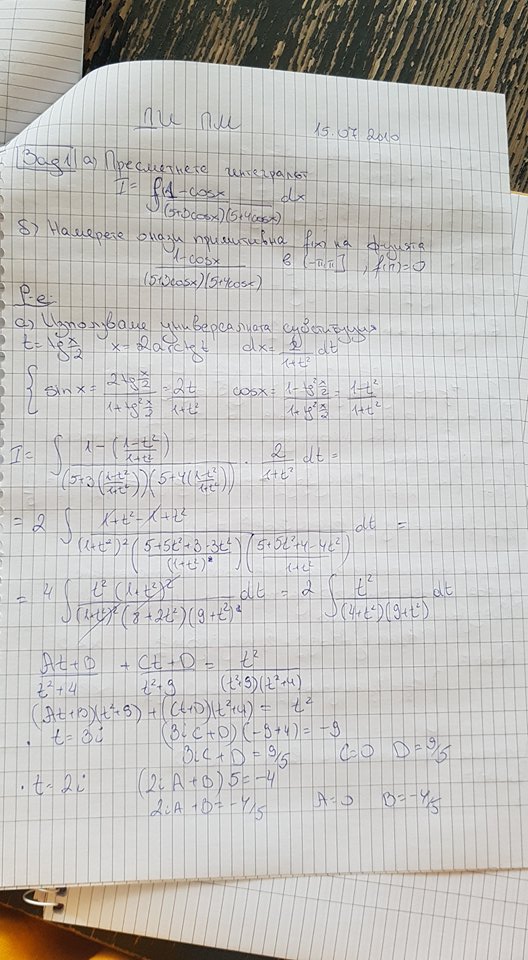 ПИ ПМ 15.07.2010
Зад1 а) Пресметнете интегралът
I = ∫ (1-cosx)/((5+3cosx)(5+4cosx)) dx
б) Намерете онази примитивна f(x) на
1-cosx/((5+3cosx)(5+4cosx)) в (-π;π], f(π)=0
Р-е:
а) Използваме универсалната субституция
t = tg x/2 x = 2arctgt dx = 2/(1+t²) dt
{ sinx = (2tg x/2)/(1+tg² x/2) = 2t/(1+t²) cosx = (1-tg² x/2)/(1+tg² x/2) = (1-t²)/(1+t²)
I = ∫ (1-((1-t²)/(1+t²)))/((5+3((1-t²)/(1+t²)))(5+4((1-t²)/(1+t²)))) · 2/(1+t²) dt =
= 2 ∫ (1+t²-1+t²)/((1+t²)²((5+5t²+3-3t²)/(1+t²))((5+5t²+4-4t²)/(1+t²))) dt =
= 4 ∫ (t²(1+t²)²)/((1+t²)²(8+2t²)(9+t²)) dt = 2 ∫ t²/((4+t²)(9+t²)) dt
(At+B)/(t²+4) + (Ct+D)/(t²+9) = t²/((t²+9)(t²+4))
(At+B)(t²+9) + (Ct+D)(t²+4) = t²
· t=3i (3iC+D)(-9+4) = -9
3iC+D = 9/5 C=0 D=9/5
· t=2i (2iA+B)5 = -4
2iA+B = -4/5 A=0 B=-4/5